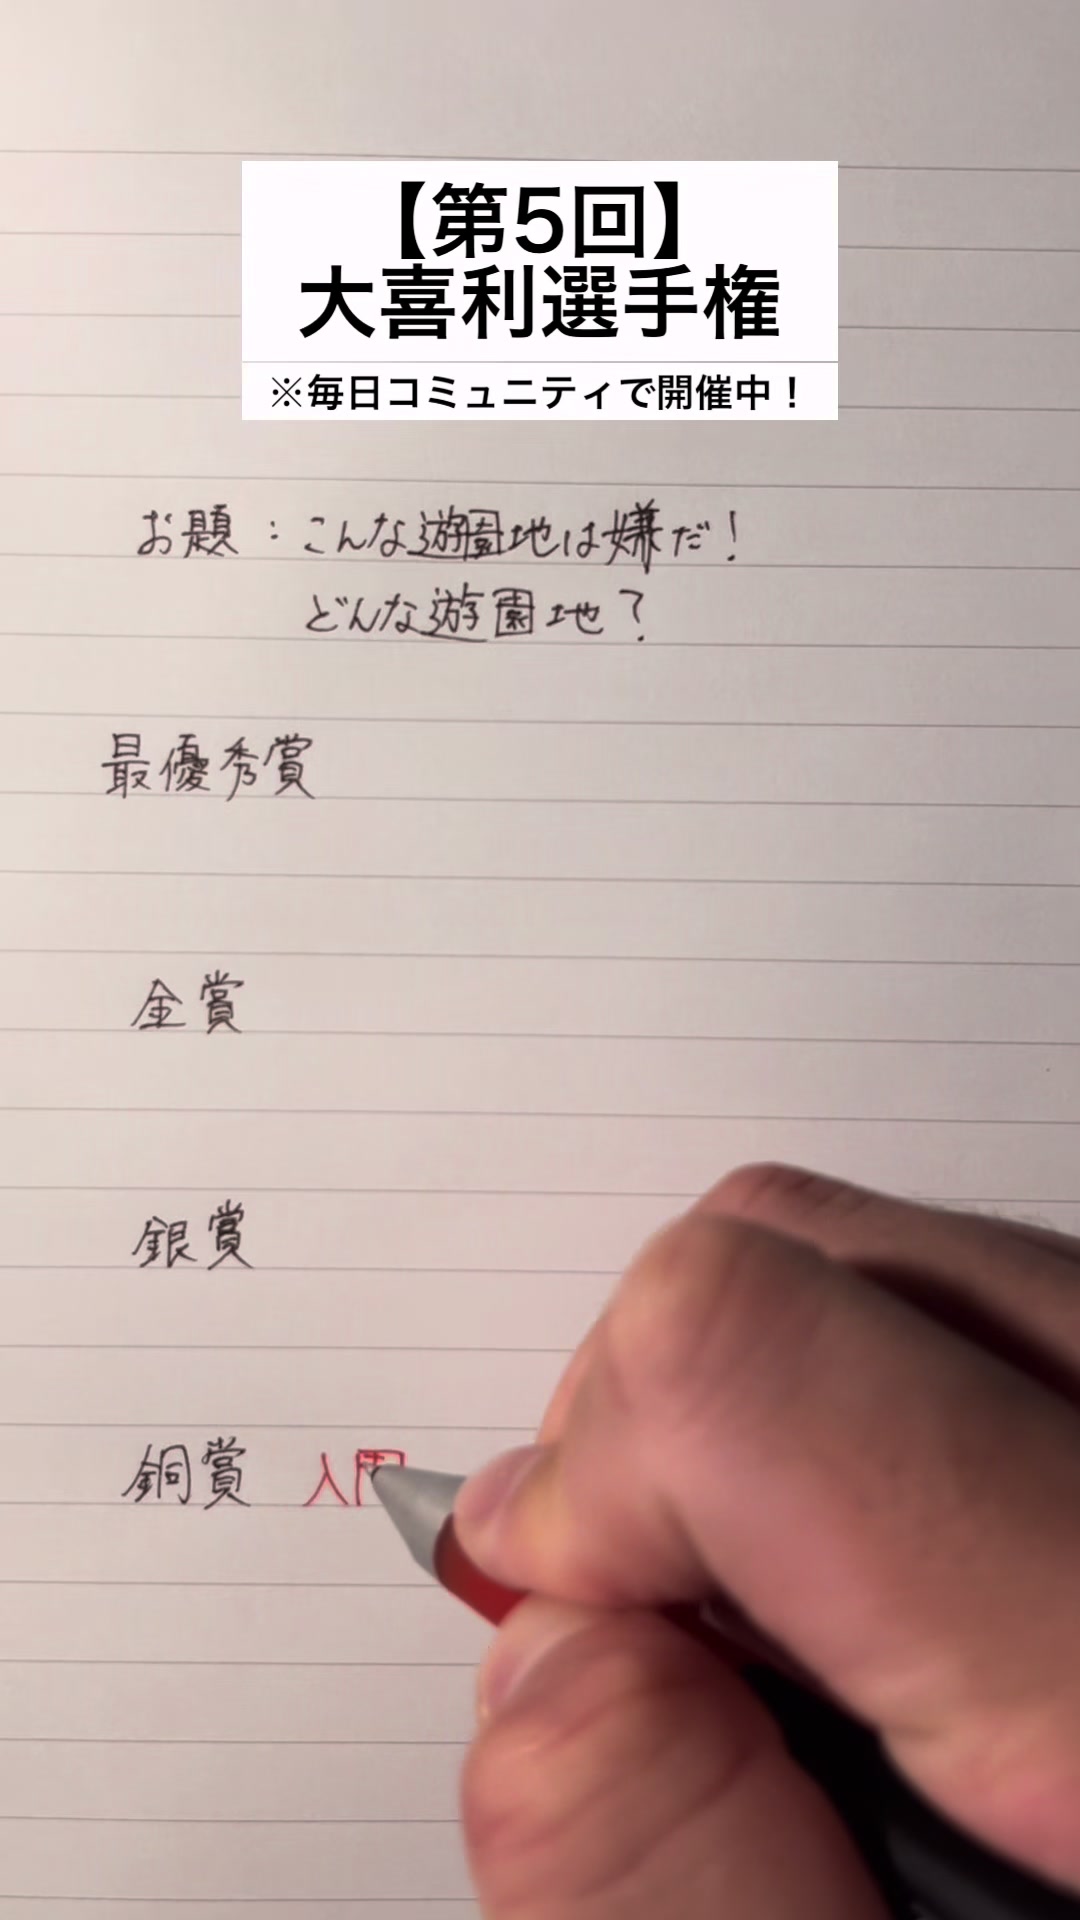 【第5回】
大喜利選手権
※毎日コミュニティで開催中！
お題：こんな遊園地は嫌だ！
どんな遊園地？
最優秀賞
金賞
銀賞
銅賞 入